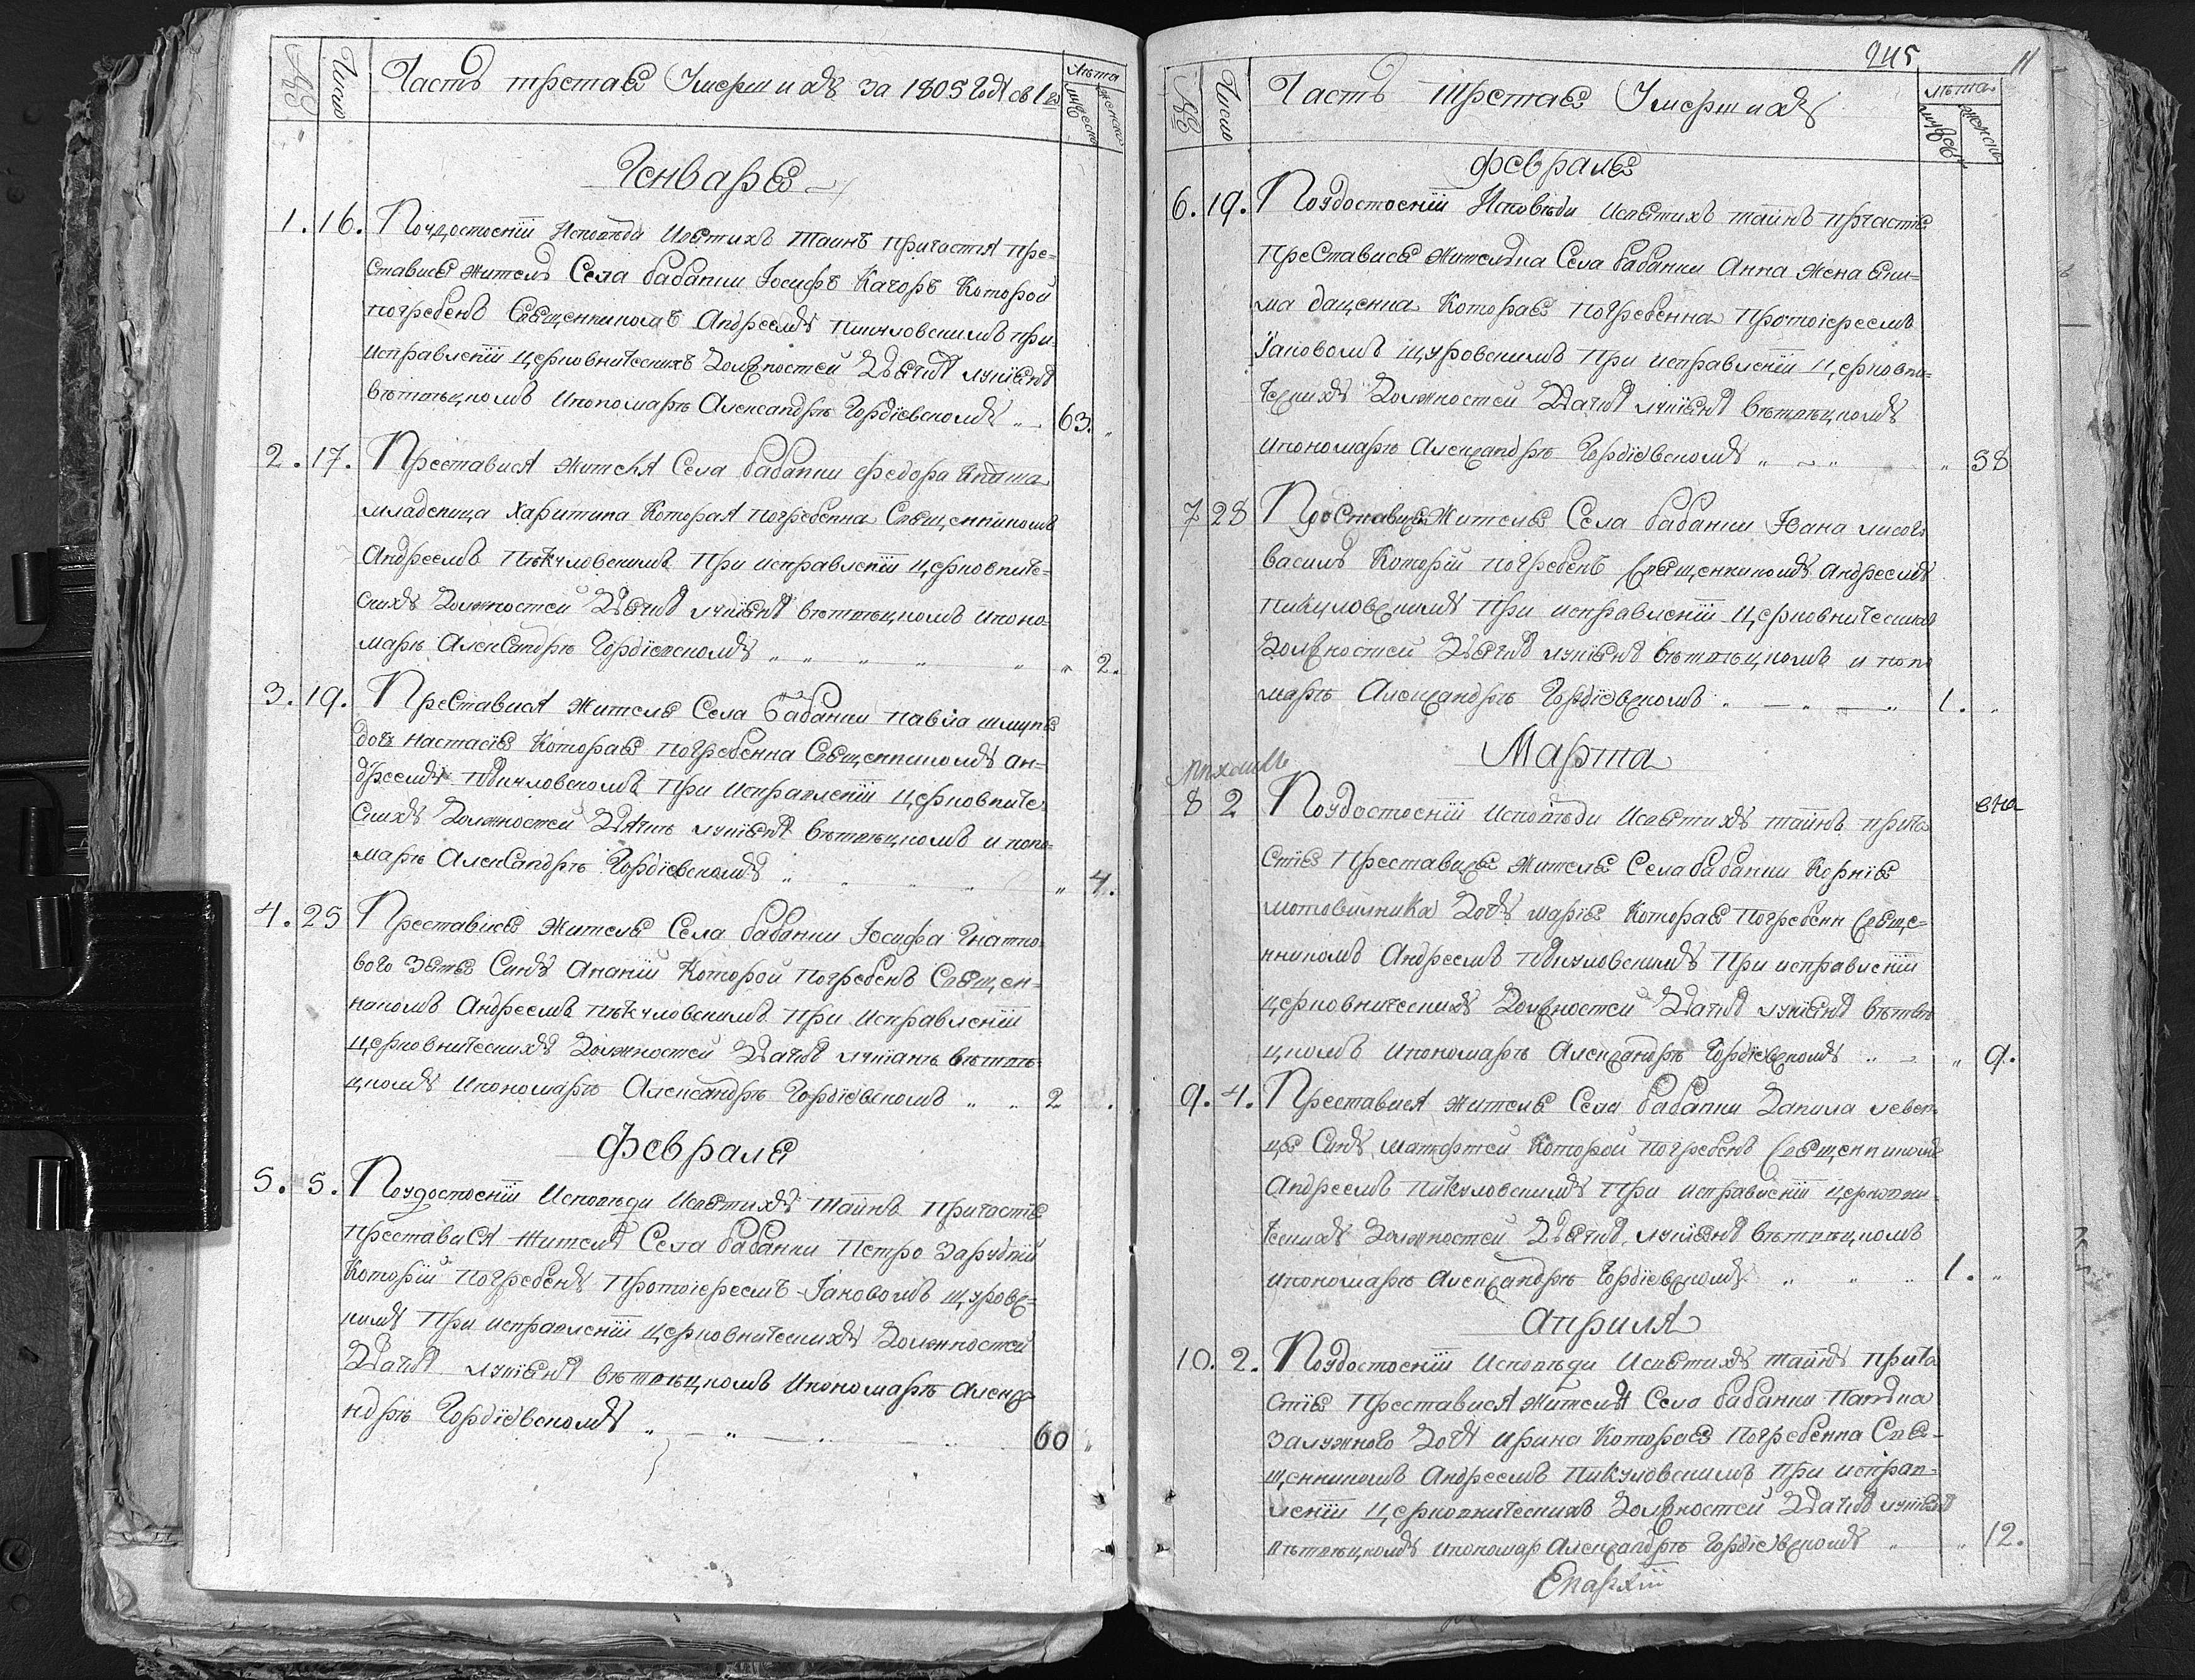 Часть третая Умершихъ за 1805 годъ
№ Число Лѣта мужеска женска
Генваря
1. 16. Поудостоенїи Исповѣди Исвятихъ Таинъ причастия пре=
ставися житель Села бабанки Іосифъ Качоръ Которой
погребенъ Священникомъ Андреемъ пикуловскимъ при
исправленїи церковническихъ должностей Дьячкѣ лукїянѣ
вѣтвѣцкомъ ипономарѣ Александрѣ Гордїевскомъ 63.
2. 17. Преставися жителя Села бабанки федора
младеница харитина Которая погребенна Священникомъ
Андреемъ пѣкуловскимъ При исправленїи церковниче=
скихъ должностей Дьячкѣ лукїянѣ вѣтвѣцкомъ ипоно=
марѣ Александрѣ Гордїевскомъ 2.
3. 19. Преставися жителя Села бабанки павла
дочъ настасїя Которая погребенна Священникомъ ан=
дреемъ пѣкуловскомъ При исправленїи церковниче
скихъ должностей Дячкѣ лукїянѣ вѣтвѣцкомъ и поно=
марѣ Александрѣ Гордїевскомъ 4.
4. 25 Преставися жителя Села бабанки Іосифа Гнатко=
вого зятя Синъ Ананїй Которой погребенъ Священ=
никомъ Андреемъ пѣкуловскимъ при Исправленїи
церковническихъ должностей Дячкѣ лукїанѣ вѣтвѣ=
цкомъ ипономарѣ Александрѣ Гордїевскомъ 2
февраля
5. 5. Поудостоенїи Исповѣди Исвятихъ Таинъ Причастїя
преставися житель Села бабанки Петро Зарудній
Которїй погребенъ протоїереемъ Іаковомъ щуровс=
кимъ При исправленїи церковническихъ должностей
Дячкѣ лукїянѣ вѣтвѣцкомъ ипономарѣ Алекса
ндрѣ Гордїевскомъ 60
245 11
Часть Третая Умершихъ
№ Число Лѣта мужеск женска
февраля
6. 19. Поудостоенїи Исповѣди исвятихъ таинъ причастїя
преставися жителька Села бабанки Анна жена Яки=
ма даценка Которая погребенна Протоїереемъ
Їаковомъ щуровскимъ при исправленїи церковни=
ческихъ должностей Дячкѣ лукїянѣ вѣтвѣцкомъ
ипономарѣ Александрѣ Гордїевскомъ 38
7 28 Преставися жителя Села бабанки Івана лисого
василь Которїй погребенъ Священникомъ андреемъ
пикуловскимъ при исправленїи церковническихъ
должностей Дьячкѣ лукїянѣ вѣтвѣцкомъ и поно
марѣ Александрѣ Гордїевскомъ 1.
Марта
8 2 Поудостоенїи исповѣди Исвятихъ таинъ прича
стїя преставися жителя Села бабанки Корнїя
мотовилника дочъ марїя Которая погребенн Свяще=
нникомъ Андреемъ пѣкуловскимъ При исправленїи
церковническихъ должностей Дячкѣ лукїянѣ вѣтвѣ
цкомъ ипономарѣ Александрѣ Гордїевскомъ 9.
9. 4. Преставися жителя Села бабанки Данила левен
ця Синъ матфтей Которой погребенъ Священникомъ
Андреемъ пикуловскимъ При исправленїи церковни=
ческихъ должностей Дьячкѣ лукїянѣ вѣтвѣцкомъ
ипономарѣ Александрѣ Гордїевскомъ 1.
Априля
10. 2. Поудостоенїи Исповѣди Исвятихъ таинъ прича
стїя Преставися жителя Села бабанки
залужного дочъ ирина Которая погребенна Свя=
щенникомъ Андреемъ пикуловскимъ при исправ=
ленїи церковническихъ должностей Дячкѣ лукїянѣ
вѣтвѣцкомъ ипономар Александрѣ Гордїевскомъ 12.
Епархїи